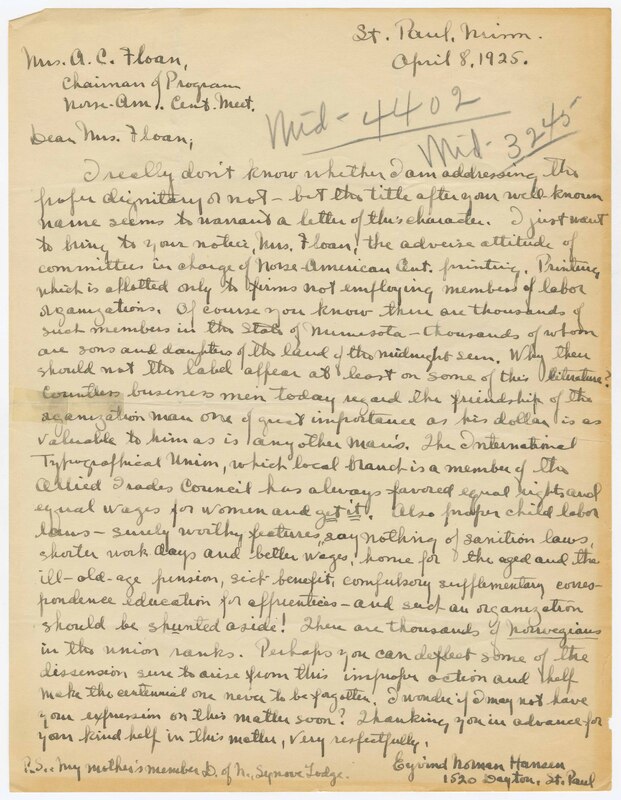 St. Paul, Minn.
April 8, 1925.
Mrs. A. C. Floan,
Chairman of Program
Norse-Am. Cent. Meet.
Mid- 4402
Mid- 3245
Dear Mrs. Floan;
I really don't know whether I am addressing the
proper dignitary or not - but the title after your well known
name seems to warrant a letter of this character. I just want
to bring to your notice Mrs. Floan, the adverse attitude of
committees in charge of Norse-American Cent. printing. Printing
which is allotted only to firms not employing members of labor
organizations. Of course you know there are thousands of
such members in the State of Minnesota - thousands of whom
are sons and daughters of the land of the midnight sun. Why then
should not the label appear at least on some of this literature?
Countless business men today regard the friendship of the
oganization man one of great importance as his dollar is as
valuable to him as is any other man's. The International
Typographical Union, which local branch is a member of the
Allied Trades Council has always favored equal rights and
equal wages for women and get it. Also proper child labor
laws - surely worthy features, say nothing of sanition laws,
shorter work days and better wages, home for the aged and the
ill - old-age pension, sick benefit, compulsory supplementary corres-
pondence education for apprentices - and such an organization
should be shunted aside! There are thousands of Norwegians
in the union ranks. Perhaps you can deflect some of the
dissension sure to arise from this improper action and help
make the centennial one never to be forgotten. I wonder if I may not have
your expression on this matter soon? Thanking you in advance for
your kind help in this matter, Very respectfully,
Eyvind Norman Hansen
1520 Dayton, St. Paul
P.S.. My mother's member D. of N., Synove Lodge.